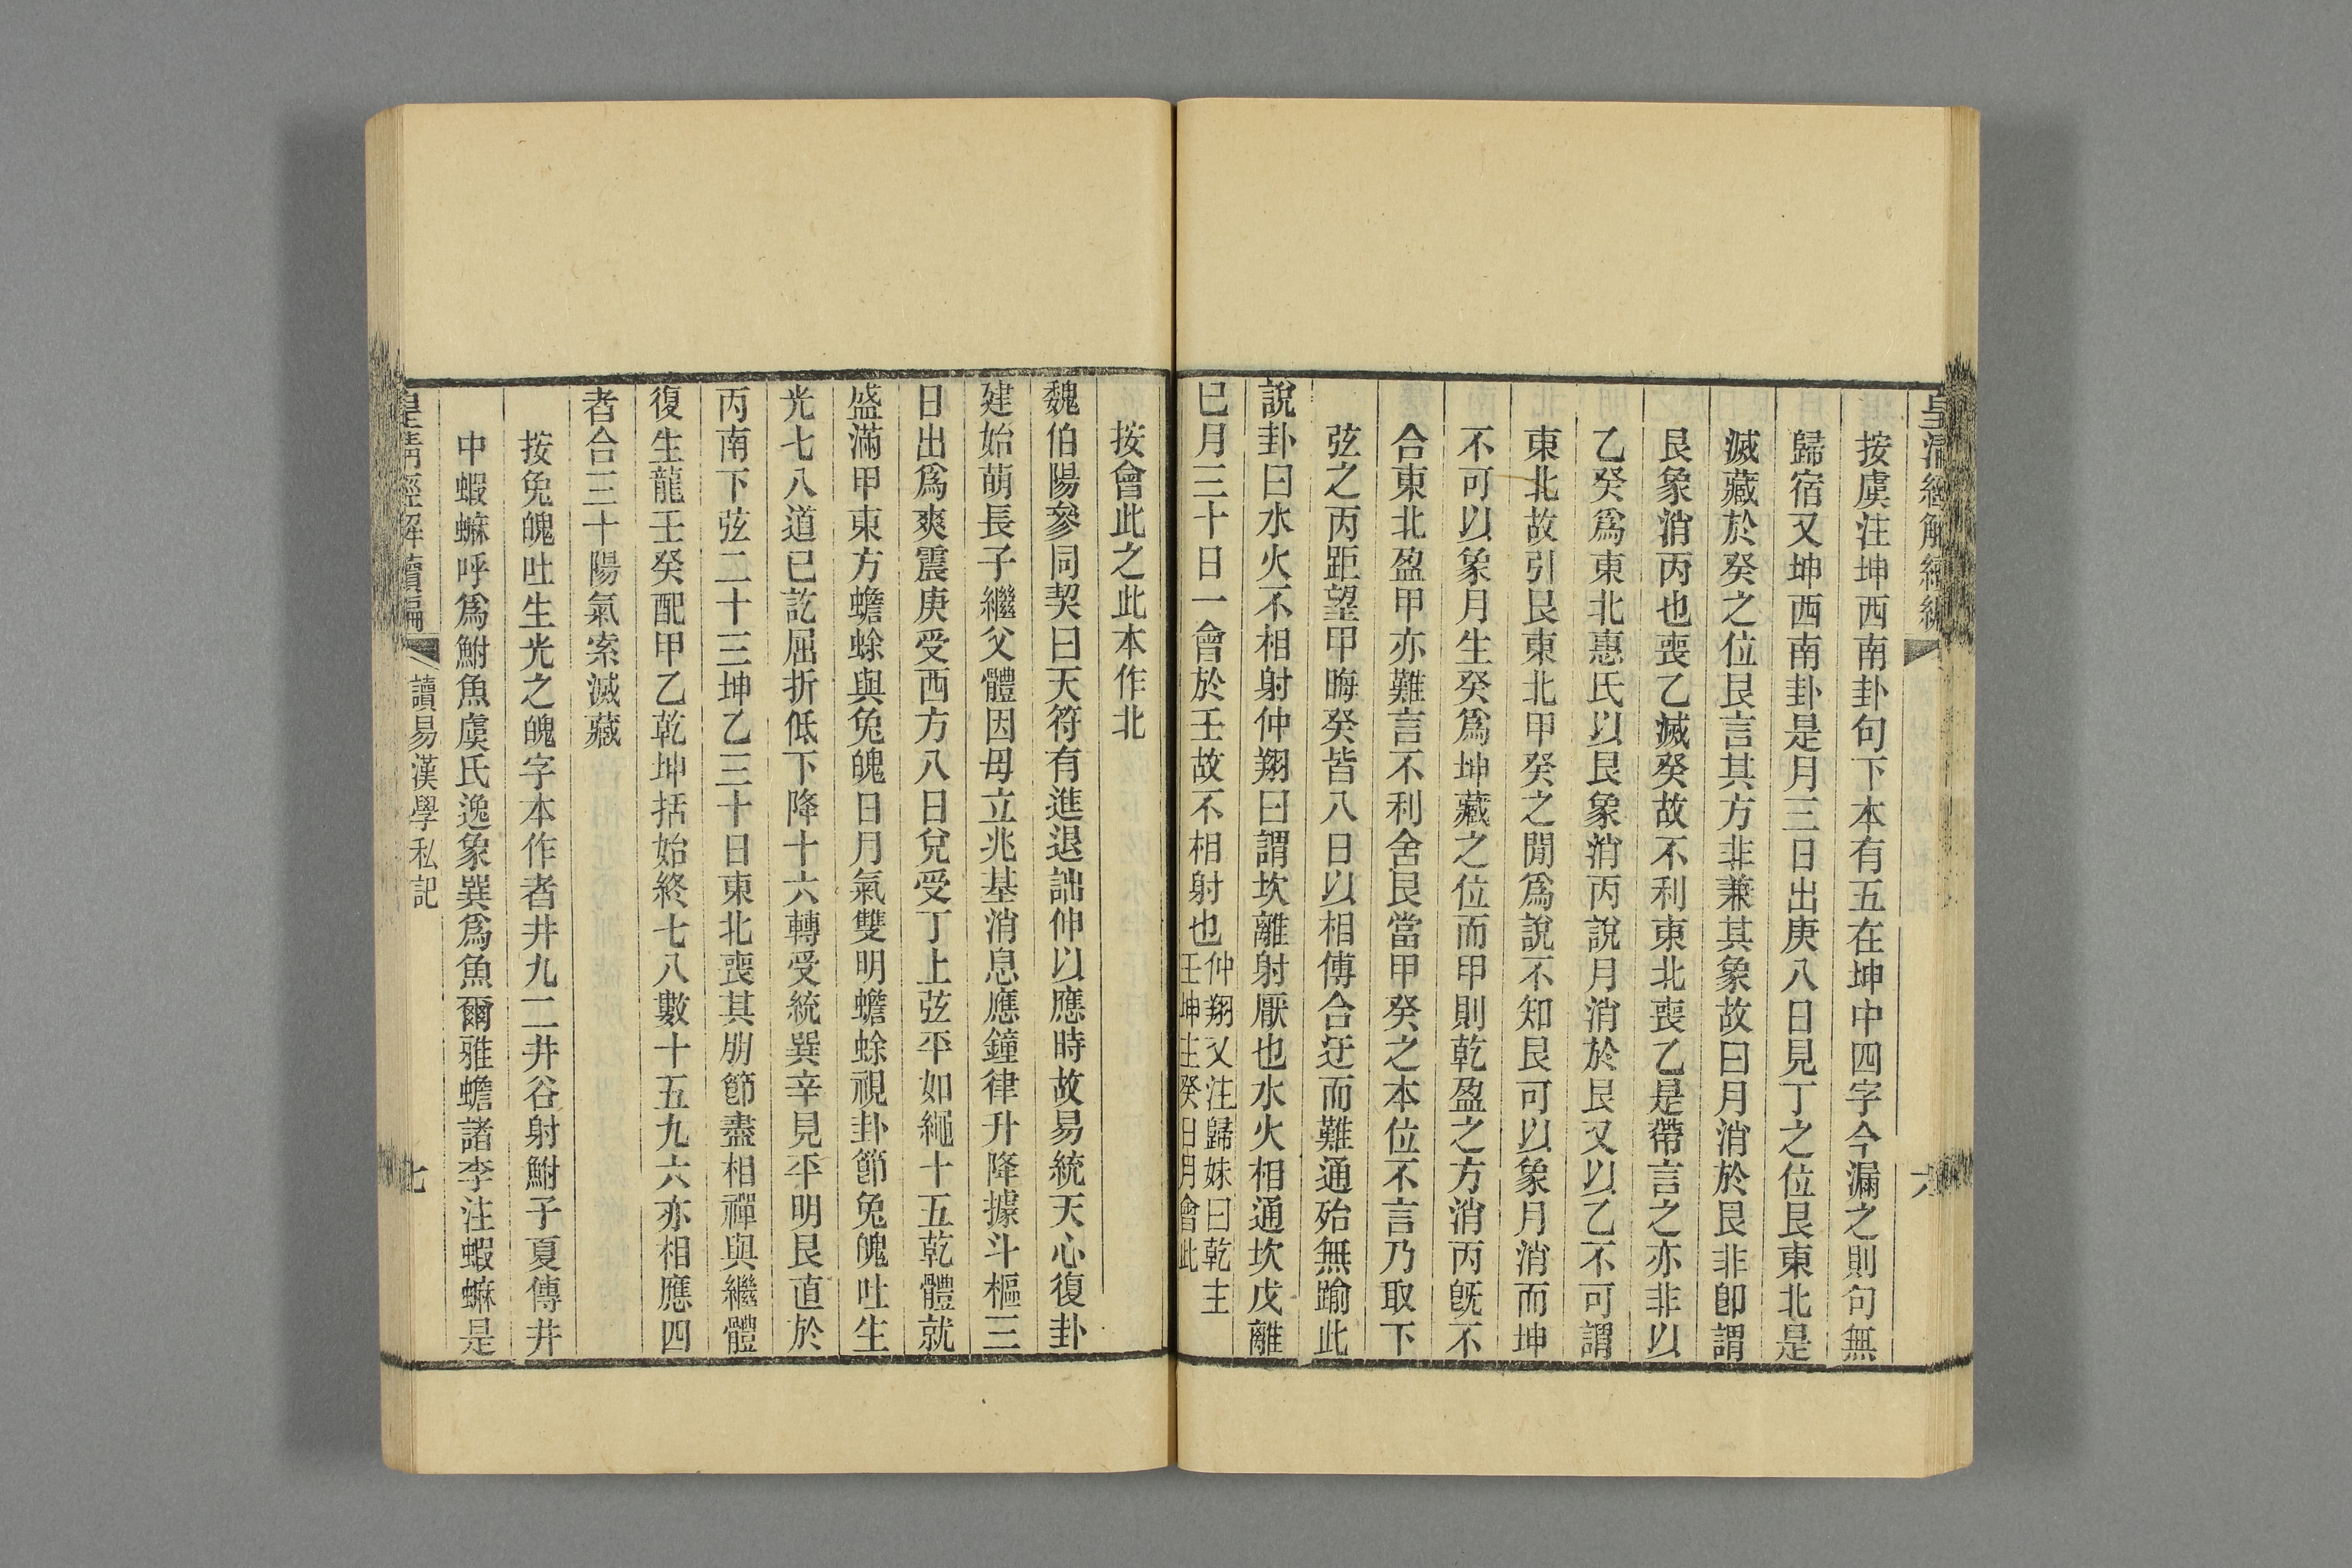 皇清經解續編
六
按虞注坤西南卦句下本有五在坤中四字今漏之則句無
歸宿又坤西南卦是月三日出庚八日見丁之位艮東北是
滅藏於癸之位艮言其方非兼其象故曰月消於艮非卽謂
艮象消丙也喪乙滅癸故不利東北喪乙是帶言之亦非以
乙癸爲東北惠氏以艮象消丙說月消於艮又以乙不可謂
東北故引艮東北甲癸之閒爲說不知艮可以象月消而坤
不可以象月生癸爲坤藏之位而甲則乾盈之方消丙旣不
合東北盈甲亦難言不利舍艮當甲癸之本位不言乃取下
弦之丙距望甲晦癸皆八日以相傅合迂而難通殆無踰此
說卦曰水火不相射仲翔曰謂坎離射厭也水火相通坎戊離
巳月三十日一會於壬故不相射也仲翔又注歸妹曰乾主
壬坤主癸日月會此
按會此之此本作北
魏伯陽參同契曰天符有進退詘伸以應時故易統天心復卦
建始萌長子繼父體因母立兆基消息應鐘律升降據斗樞三
日出爲爽震庚受西方八日兌受丁上弦平如繩十五乾體就
盛滿甲東方蟾蜍與兔魄日月氣雙明蟾蜍視卦節兔魄吐生
光七八道已訖屈折低下降十六轉受統巽辛見平明艮直於
丙南下弦二十三坤乙三十日東北喪其朋節盡相禪與繼體
復生龍壬癸配甲乙乾坤括始終七八數十五九六亦相應四
者合三十陽氣索滅藏
按兔魄吐生光之魄字本作者井九二井谷射鮒子夏傳井
中蝦蟆呼爲鮒魚虞氏逸象巽爲魚爾雅蟾諸李注蝦蟆是
皇清經解續編
讀易漢學私記
七